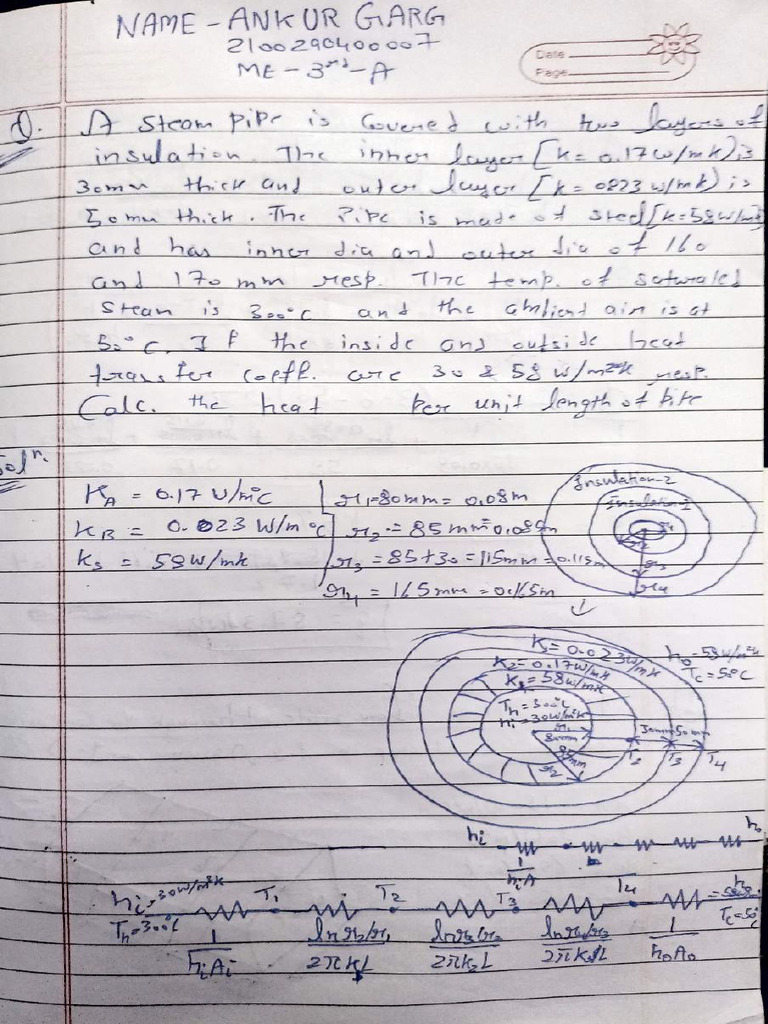 NAME - ANKUR GARG
2100290400007
ME - 3rd - A
Date
Page
Q. A Steam Pipe is Covered with two layers of
insulation. The inner layer [k = 0.17 w/mk) is
30mm thick and outer layer [k = 0823 w/mk) is
50mm thick. The Pipe is made of steel [k=58w/mk]
and has inner dia and outer dia of 160
and 170 mm resp. The temp. of saturated
Steam is 300°C and the ambient air is at
50°C. If the inside and outside heat
transfer coeff. are 30 & 58 W/m²k resp.
Calc. the heat Per unit length of Pipe
Solⁿ.
KA = 0.17 W/m°C
KB = 0.023 W/m°C
Ks = 58W/mk
r1 = 80mm = 0.08m
r2 = 85mm = 0.085m
r3 = 85+30 = 115mm = 0.115m
r4 = 165mm = 0.165m
Insulation-2
Insulation-1
K3 = 0.023W/mK
K2 = 0.17W/mK
K1 = 58W/mK
ho = 58W/m²k
Tc = 5°C
Th = 300°C
hi = 30W/m²K
r1
80mm
85mm
r2
30mm 50mm
T2 T3 T4
hi ho
1/hiA
hi = 30W/m²K
Th = 300°C
T1 T2 T3 T4
1/hiAi
ln r2/r1 / 2πk1L
ln r3/r2 / 2πk2L
ln r4/r3 / 2πk3L
1/hoAo